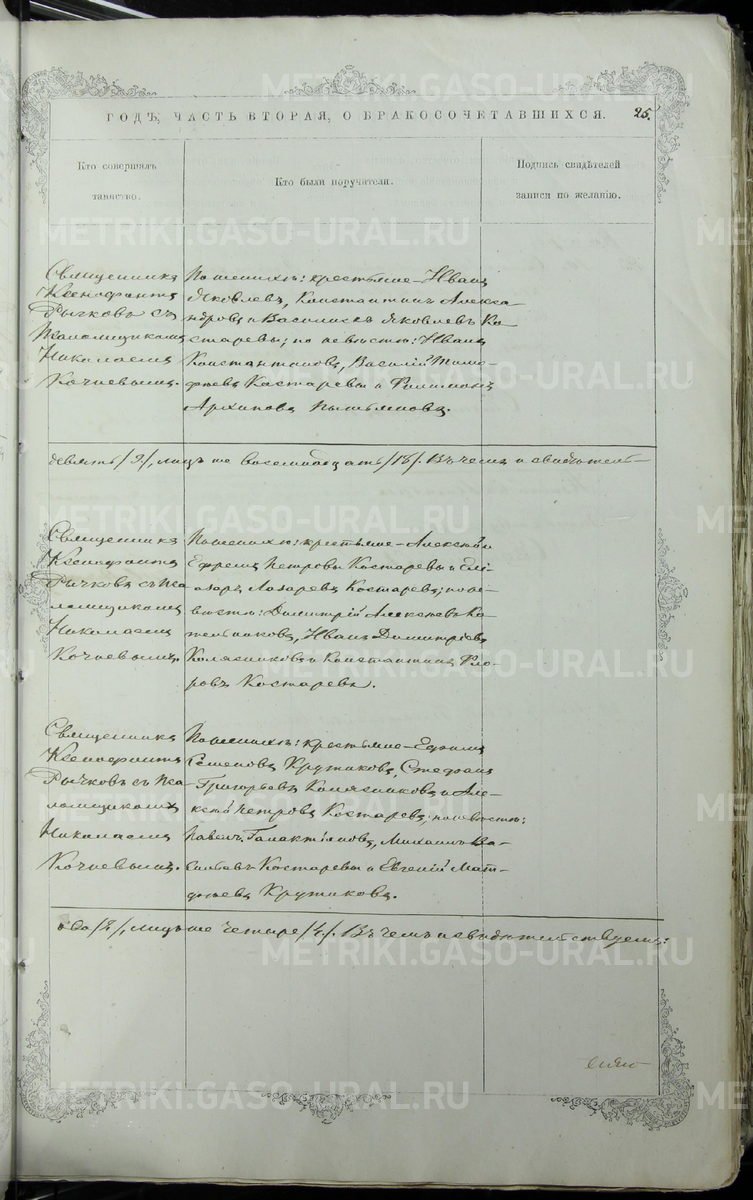 ГОДЪ, ЧАСТЬ ВТОРАЯ, О БРАКОСОЧЕТАВШИХСЯ. 25.
Кто совершалъ таинство.
Кто были поручители.
Подпись свидѣтелей записи по желанію.
Священникъ
Ксенофонтъ
Рычковъ съ
Псаломщикомъ
Николаемъ
Кочневымъ.
По женихѣ: крестьяне – Иванъ
Яковлевъ, Константинъ Алекса-
ндровъ и Василискъ Яковлевъ Ко-
старевы; по невѣстѣ: Иванъ
Константиновъ, Василій Тимо-
феевъ Костаревы и Филимонъ
Архиповъ Пышминовъ.
девять /9/, лицъ же восемнадцать /18/. Въ чемъ и свидѣтель-
Священникъ
Ксенофонтъ
Рычковъ съ Пса-
ломщикомъ
Николаемъ
Кочневымъ.
По женихѣ: крестьяне – Алексѣй и
Ефремъ Петровы Костаревы и Елі-
азаръ Лазаревъ Костаревъ; по не-
вѣстѣ: Димитрій Алексѣевъ Ко-
тельниковъ, Иванъ Димитріевъ
Колясниковъ и Константинъ Фло-
ровъ Костаревъ.
Священникъ
Ксенофонтъ
Рычковъ съ Пса-
ломщикомъ
Николаемъ
Кочневымъ.
По женихѣ: крестьяне – Ефимъ
Семеновъ Кружиковъ, Стефанъ
Григорьевъ Колясниковъ и Але-
ксѣй Петровъ Костаревъ; по невѣстѣ:
Павелъ Галактіоновъ, Михаилъ Ва-
Костаревы и Евгеній Мат-
фѣевъ Кружиковъ.
два /2/, лицъ же четыре /4/. Въ чемъ и свидѣтельствуемъ:
METRIKI.GASO-URAL.RU